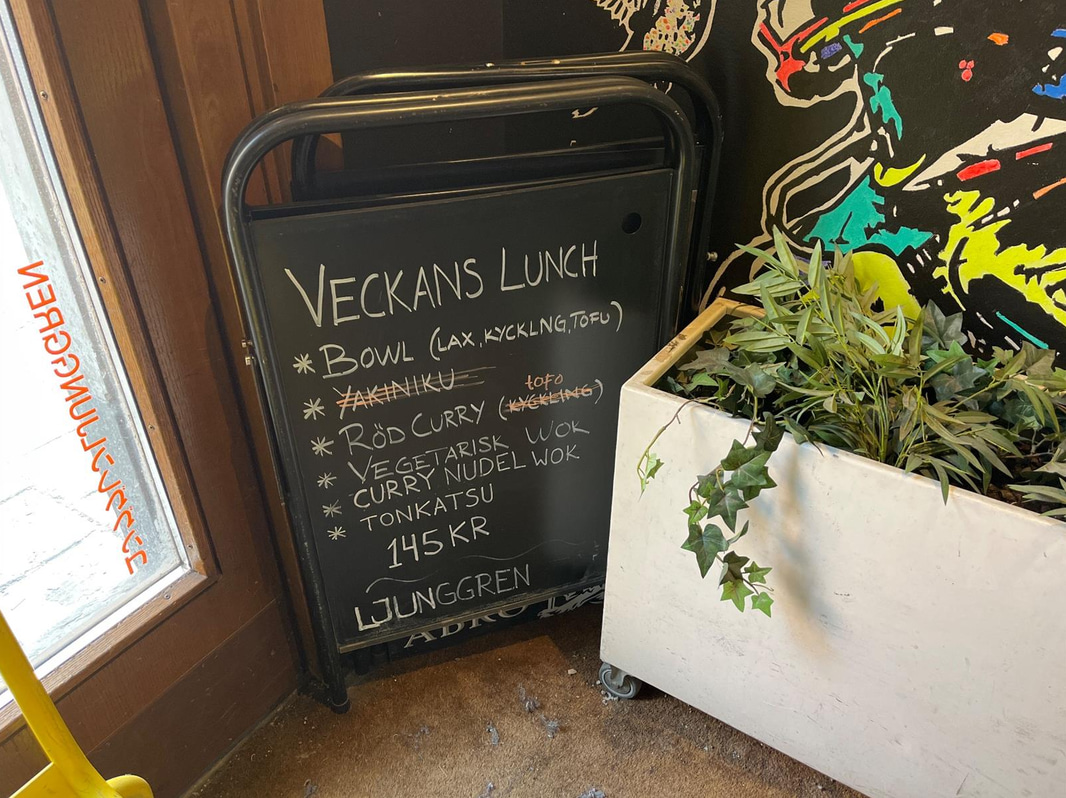 VECKANS LUNCH
* BOWL (LAX, KYCKLNG, TOFU)
* YAKINIKU
* RÖD CURRY (KYCKLING) TOFO
* VEGETARISK WOK
* CURRY NUDEL WOK
* TONKATSU
145 KR
LJUNGGREN
LJUNGGREN